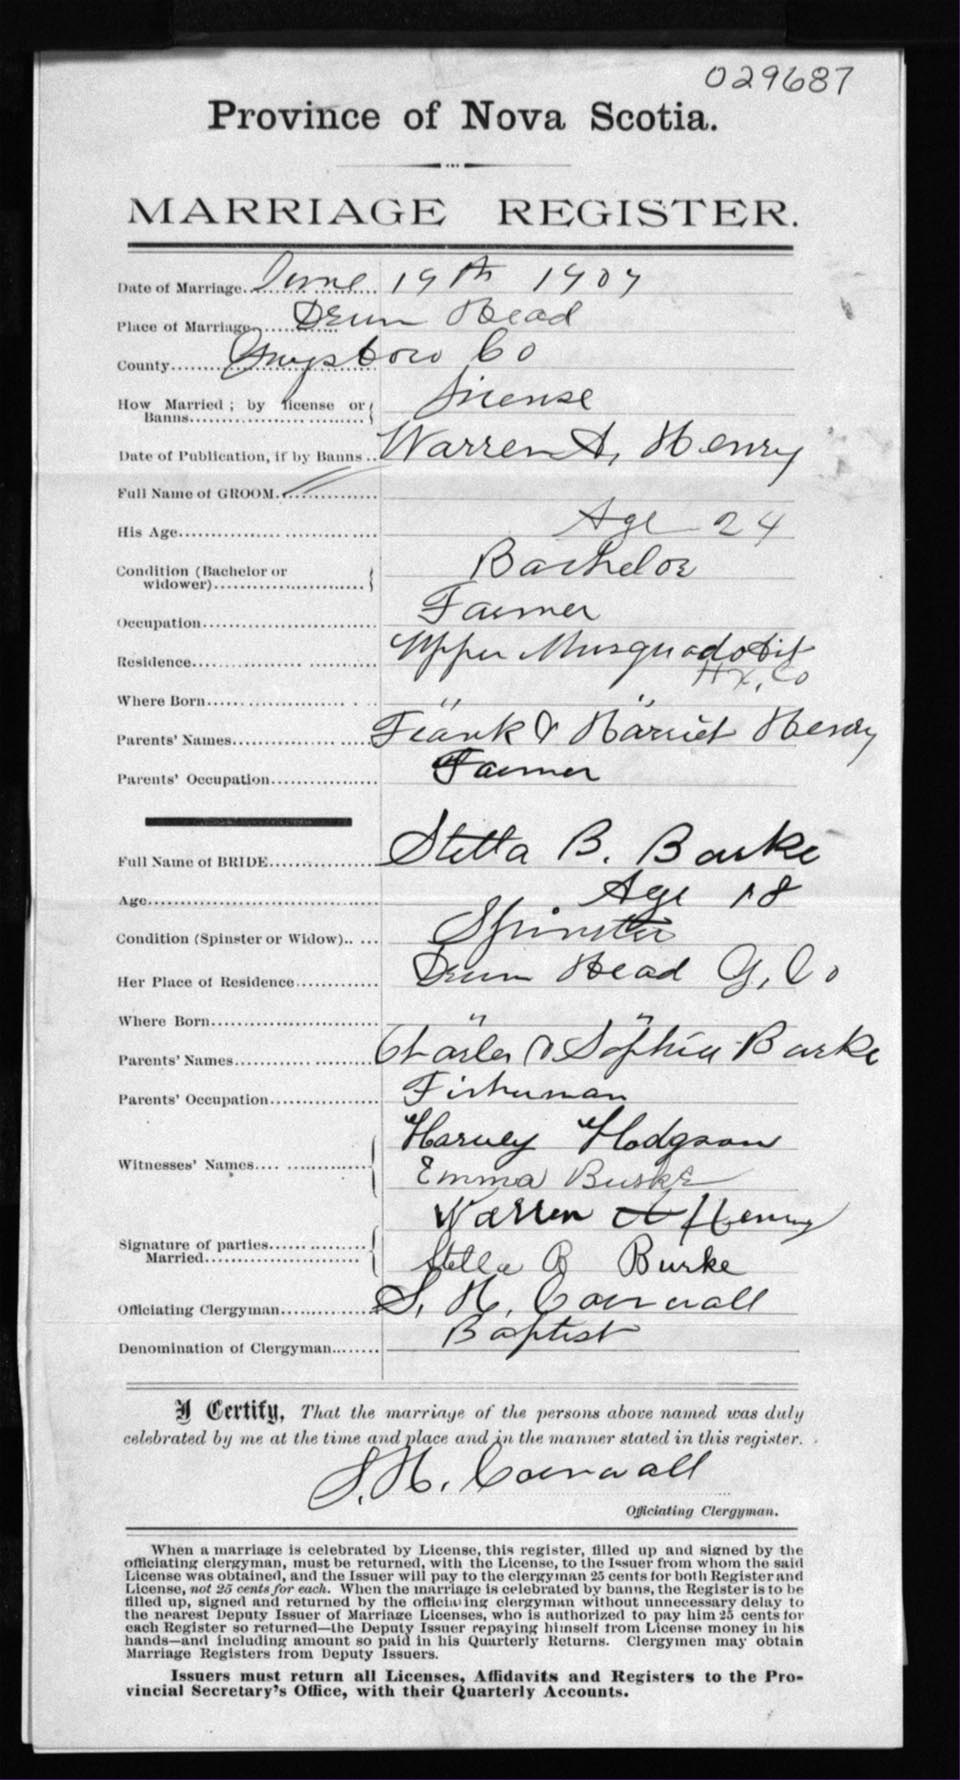 029687
Province of Nova Scotia.
MARRIAGE REGISTER.
Date of Marriage June 19th 1907
Place of Marriage Drum Head
County Guysboro Co
How Married; by license or Banns License
Date of Publication, if by Banns Warren A, Henry
Full Name of GROOM
His Age Age 24
Condition (Bachelor or widower) Bachelor
Occupation Farmer
Residence Upper Musquodobit
Hx, Co
Where Born " "
Parents' Names Frank & Harriet Henry
Parents' Occupation Farmer
Full Name of BRIDE Stella B. Burke
Age Age 18
Condition (Spinster or Widow) Spinster
Her Place of Residence Drum Head G, Co
Where Born " "
Parents' Names Charles & Sophia Burke
Parents' Occupation Fisherman
Witnesses' Names Harvey Hodgson
Emma Burke
Signature of parties Married Warren A Henry
Stella B Burke
Officiating Clergyman S. H. Cornwall
Denomination of Clergyman Baptist
I Certify, That the marriage of the persons above named was duly
celebrated by me at the time and place and in the manner stated in this register.
S. H. Cornwall
Officiating Clergyman.
When a marriage is celebrated by License, this register, filled up and signed by the
officiating clergyman, must be returned, with the License, to the Issuer from whom the said
License was obtained, and the Issuer will pay to the clergyman 25 cents for both Register and
License, not 25 cents for each. When the marriage is celebrated by banns, the Register is to be
filled up, signed and returned by the officiating clergyman without unnecessary delay to
the nearest Deputy Issuer of Marriage Licenses, who is authorized to pay him 25 cents for
each Register so returned—the Deputy Issuer repaying himself from License money in his
hands—and including amount so paid in his Quarterly Returns. Clergymen may obtain
Marriage Registers from Deputy Issuers.
Issuers must return all Licenses, Affidavits and Registers to the Pro-
vincial Secretary's Office, with their Quarterly Accounts.